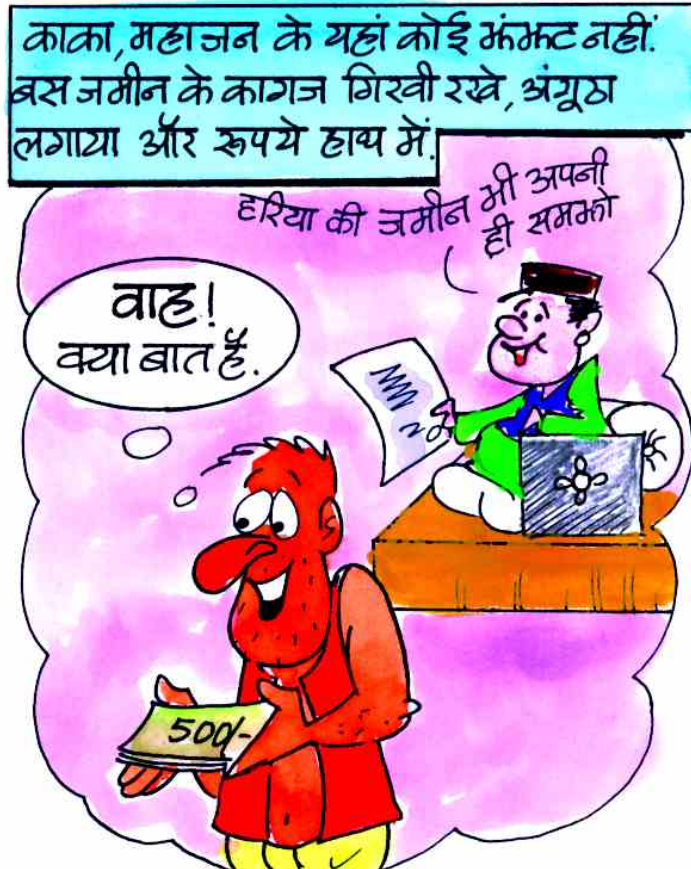 काका, महाजन के यहां कोई झंझट नहीं.
बस जमीन के कागज गिरवी रखे, अंगूठा
लगाया और रूपये हाथ में.
हरिया की जमीन भी अपनी
ही समझो
वाह!
क्या बात है.
500/-